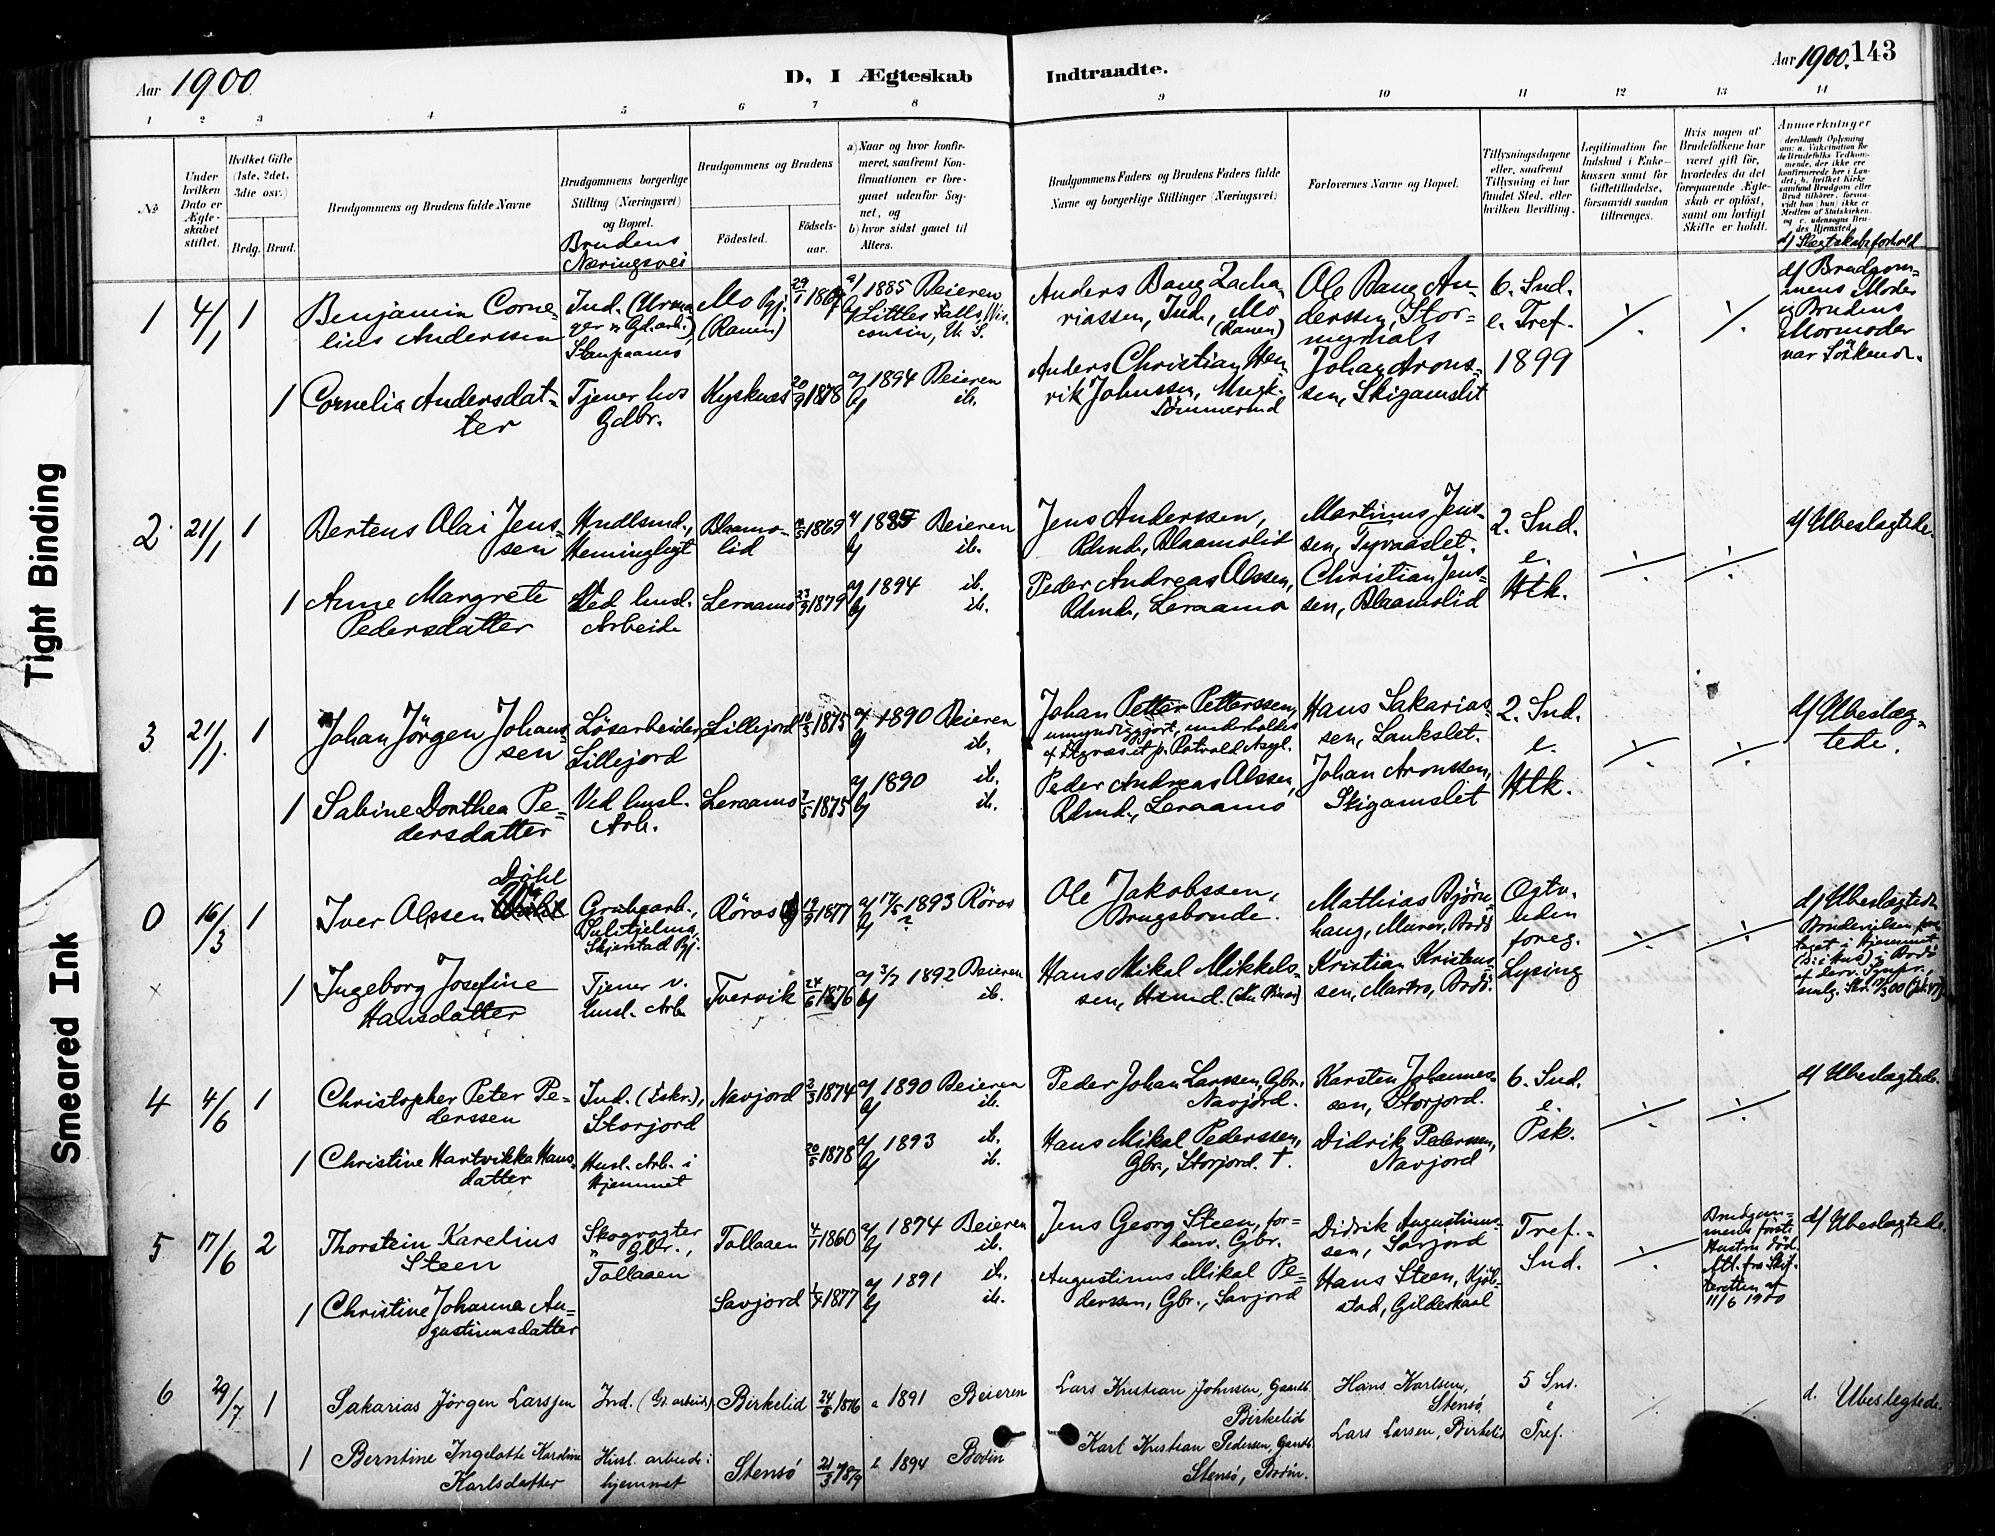 Aar 1900.
D, I Ægteskab
Indtraadte.
Aar 1900. 143
1 2 3 4 5 6 7 8 9 10 11 12 13 14
No
Under hvilken Dato er Ægteskabet stiftet.
Hvilket Gifte (1ste, 2det, 3die osv.)
Brdg. Brud.
Brudgommens og Brudens fulde Navne
Brudgommens borgerlige Stilling (Næringsvei) og Bopæl.
Brudens Næringsvei
Brudgommens og Brudens
Fødested.
Fødselsaar.
a) Naar og hvor konfirmeret, saafremt Konfirmationen er foregaaet udenfor Sognet, og
b) hvor sidst gaaet til Alters.
Brudgommens Faders og Brudens Faders fulde Navne og borgerlige Stillinger (Næringsvei)
Forlovernes Navne og Bopæl.
Tillysningsdagene eller, saafremt Tillysning ei har fundet Sted, efter hvilken Bevilling.
Legitimation for Indskud i Enkekassen samt for Giftetilladelse, forsaavidt saadan tiltrænges.
Hvis nogen af Brudefolkene har været gift før, hvorledes da det foregaaende Ægteskab er opløst, samt om lovligt Skifte er holdt.
Anmerkninger
d) Slægtskabsforhold
1 4/1 1
Benjamin Cornelius Anderssen
Mo Pgj. (Ranen)
a) 1885 Beieren
b) Little Falls, Wisconsin, U. S.
Anders Bang Zachariassen, Ind., Mo (Ranen)
Ole Bang Anderssen, Stormyrhals
6. Snd. e. Tref. 1899
d) Brudgommens Moder og Brudens Mormoder var Søskende.
1 Cornelia Andersdatter
Tjener hos Gdbr.
a) 1894 Beieren
b) ib.
Anders Christian Henrik Johnssen
Johan Aronssen, Skigamslet
2. 21/1 1
Bertens Olai Jenssen
Blaamolid
1869
Beieren
b) ib.
Jens Anderssen, Rdmd., Blaamolid
Martinus Jenssen
2. Snd. e. Htk.
d) Ubeslægtede.
1 Anne Margrete Pedersdatter
Ved husl. Arbeide
Leraamo
23/9 1879
a) 1894 ib.
b) ib.
Peder Andreas Olssen, Rdmd., Leraamo
Christian Jenssen, Blaamolid
3. 21/1. 1
Johan Jørgen Johanssen
Løsarbeider, Lillejord
Lillejord
1875
a) 1890 Beieren
b) ib.
Johan Petter Petterssen, umyndiggjort, underholdes
Hans Sakariassen
2. Snd. e. Htk.
d) Ubeslægtede.
1 Sabine Dorthea Pedersdatter
Ved husl. Arb.
Leraamo
1875
a) 1890 ib.
b) ib.
Peder Andreas Olssen, Rdmd., Leraamo
Johan Aronssen, Skigamslet
0 16/3 1
Iver Olssen Döhl
Grubearb., Sulitjelma, Skjerstad Pgj.
Röros
19/9 1877
a) 17/5 1893 Röros
b) ?
Ole Jakobssen, Brugsbonde.
Mathias Bjørnhaug, Murer, Bodø
Egtv. uden foreg. Lysing
d) Ubeslægtede
1 Ingeborg Josefine Hansdatter
Tjener v. husl. Arb.
Tvervik
24/6 1876
a) 3/7 1892 Beieren
b) ib.
Hans Mikal Mikkelssen, Hsmd.
Kristian Kristenssen, Bodø.
4 4/6 1
Christopher Peter Pederssen
Ind. (Fskr.), Storjord
Navjord
2/3 1874
a) 1890 Beieren
b) ib.
Peder Johan Larssen, Gbr., Navjord.
Karsten Johannessen, Storjord.
6. Snd. e. Psk.
d) Ubeslægtede.
1 Christine Hartvikka Hansdatter
Husl. Arb. i Hjemmet
20/5 1878
a) 1893 ib.
b) ib.
Hans Mikal Pederssen, Gbr., Storjord. †.
Didrik Pederssen, Navjord
5 17/6 2
Thorstein Karelius Steen
Skogvogter n Gbr., Tollaaen
Tollaaen
1860
a) 1874 Beieren
b) ib.
Jens Georg Steen, forhenv. Gbr.
Didrik Augustinussen, Savjord
Tref.-Snd.
Brudgommens første Hustru død. Att. fra Skifteretten af 11/6 1900
d) Ubeslægtede.
1 Christine Johanna Augustinusdatter
Savjord
1877
a) 1891 ib.
b) ib.
Augustinus Mikal Pederssen, Gbr., Savjord
Hans Steen, Kjølstad, Gildeskaal
6 29/7 1
Sakarias Jörgen Larssen
Ind. (Gr. arbeid.)
Birkelid
24/5 1876
a 1891 Beieren
Lars Kristian Johnsen, Gaardb. Birkelid
Hans Karlsen, Stensö
5 Snd. e Tref.
d. Ubeslegtede.
1 Berntine Ingelotte Karoline Karlsdatter
Husl. arbeide i hjemmet
Stensö
21/3 1879
b 1894 Bodin
Karl Kristian Pedersen, Gaardb. Stensö, Bodin.
Lars Larsen, Birkelid
Tight Binding
Smeared Ink